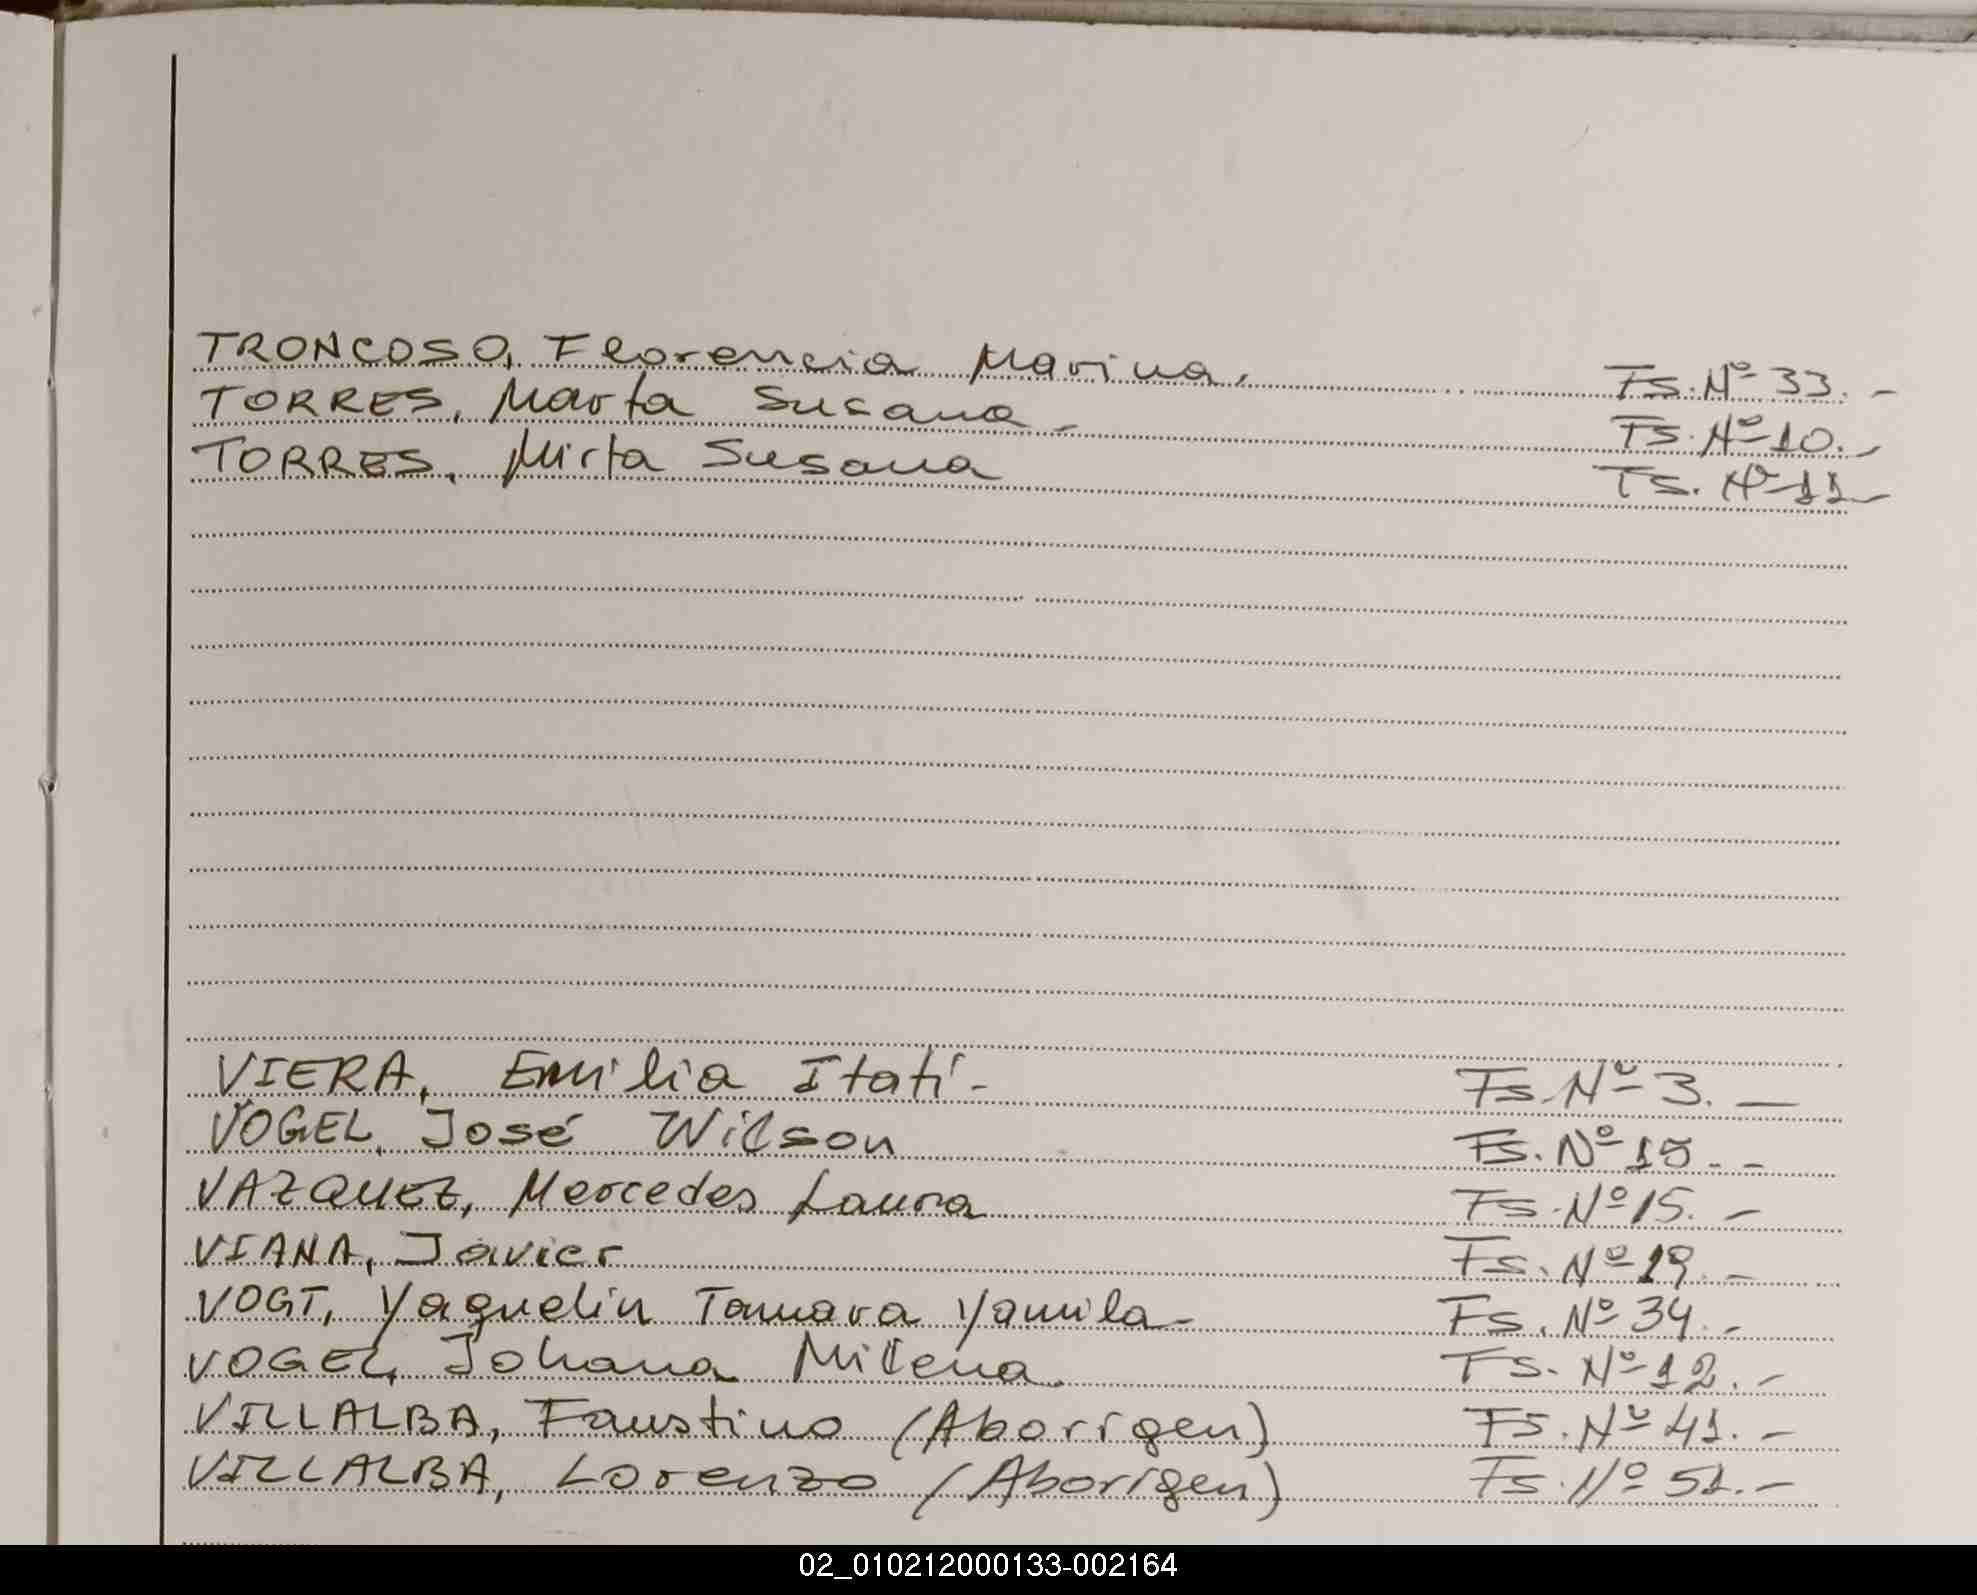 TRONCOSO, Florencia Marina. Fs. Nº 33. -
TORRES, Marta Susana - Fs. Nº 10. -
TORRES, Mirta Susana Fs. Nº 11 -
VIERA, Emilia Itatí - Fs. Nº 3. -
VOGEL, José Wilson Fs. Nº 15. -
VAZQUEZ, Mercedes Laura Fs. Nº 15. -
VIANA, Javier Fs. Nº 19. -
VOGT, Yaquelin Tamara Yamila - Fs. Nº 34. -
VOGEL, Johana Milena. Fs. Nº 12. -
VILLALBA, Faustino (Aborigen) Fs. Nº 41. -
VILLALBA, Lorenzo (Aborigen) Fs. Nº 51. -
02_010212000133-002164